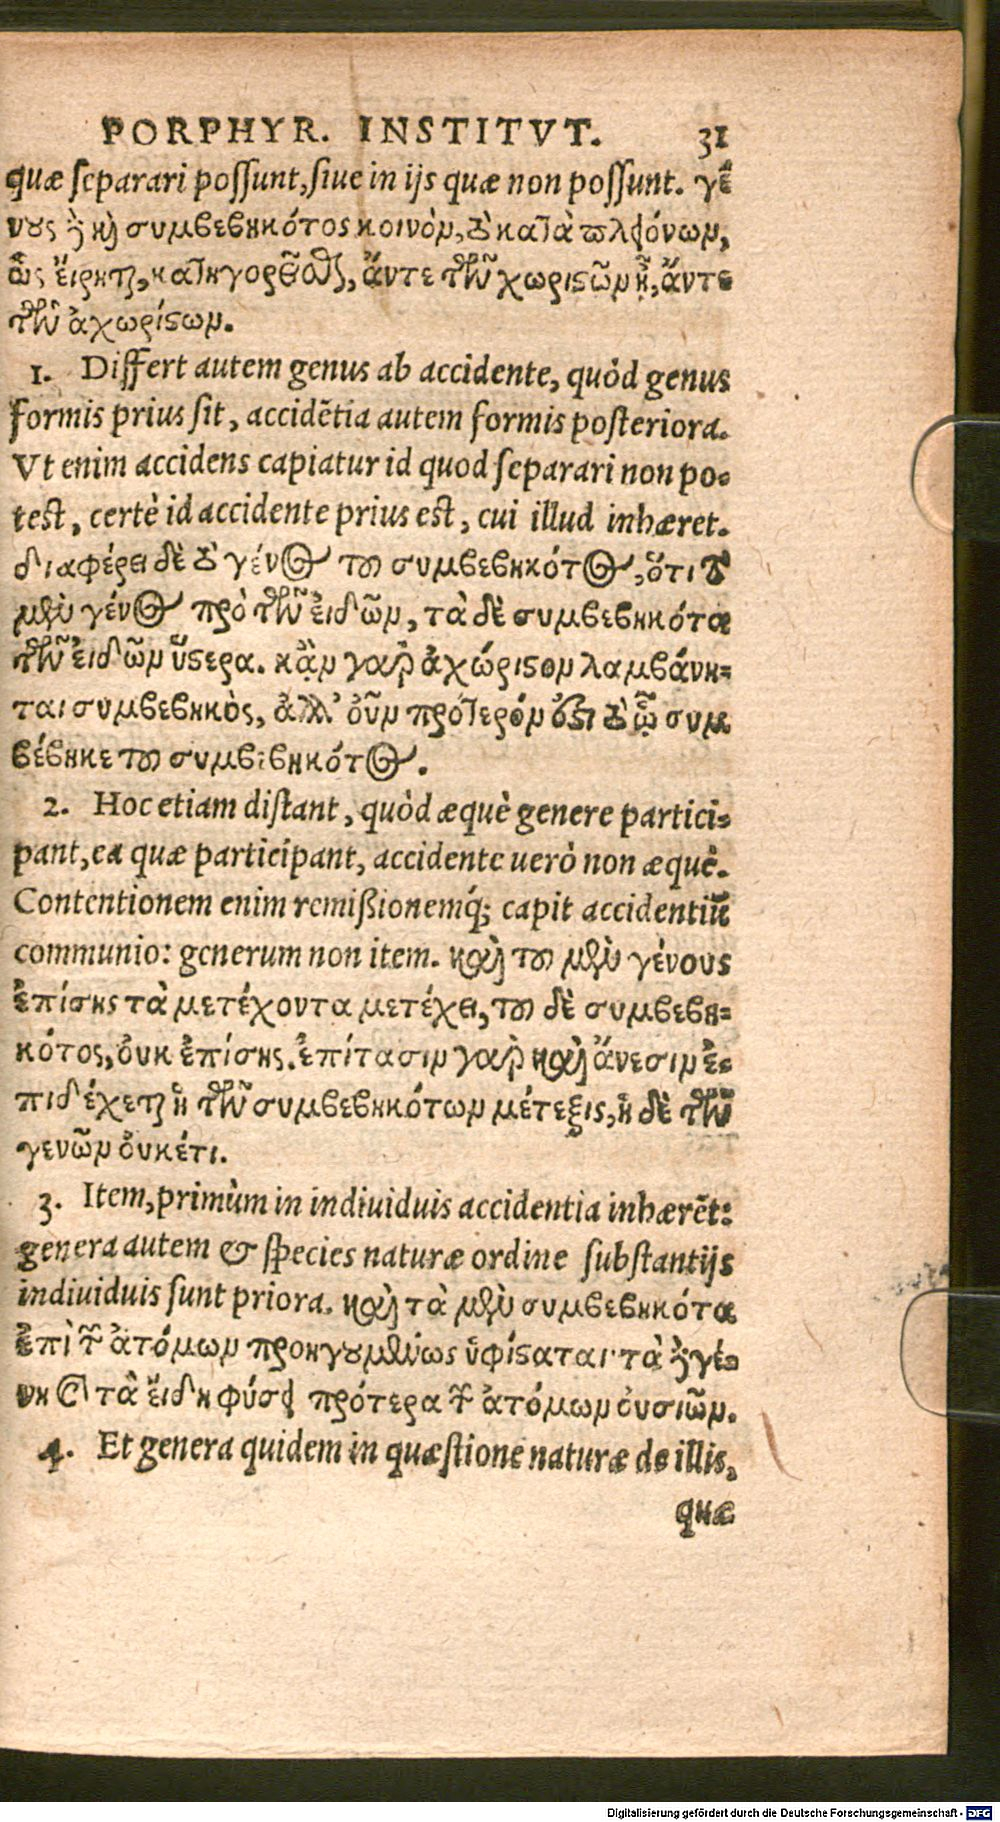 PORPHYR. INSTITVT. 31
quæ separari possunt, siue in ijs quæ non possunt. γέ
νους ἢ καὶ συμβεβηκότος κοινὸν, τὸ κατὰ πλειόνων,
ὡς εἴρηται, κατηγορεῖσθαι, ἄντε τῶν χωριστῶν ᾖ, ἄντε
τῶν ἀχωρίστων.
1. Differt autem genus ab accidente, quòd genus
formis prius sit, accidẽtia autem formis posteriora.
Vt enim accidens capiatur id quod separari non po-
test, certè id accidente prius est, cui illud inhæret.
διαφέρει δὲ τὸ γένος τοῦ συμβεβηκότος, ὅτι τὸ
μὲν γένος πρὸ τῶν εἰδῶν, τὰ δὲ συμβεβηκότα
τῶν εἰδῶν ὕστερα. κᾂν γὰρ ἀχώριστον λαμβάνη-
ται συμβεβηκὸς, ἀλλ' οὖν πρότερόν ἐστι τὸ ᾧ συμ
βέβηκε τοῦ συμβεβηκότος.
2. Hoc etiam distant, quòd æquè genere partici-
pant, ea quæ participant, accidente uerò non æquè.
Contentionem enim remißionemq́; capit accidentiũ
communio: generum non item. καὶ τοῦ μὲν γένους
ἐπίσης τὰ μετέχοντα μετέχει, τοῦ δὲ συμβεβη-
κότος, οὐκ ἐπίσης. ἐπίτασιν γὰρ καὶ ἄνεσιν ἐ-
πιδέχεται ἡ τῶν συμβεβηκότων μέτεξις, ἡ δὲ τῶν
γενῶν οὐκέτι.
3. Item, primùm in indiuiduis accidentia inhærẽt:
genera autem & species naturæ ordine substantijs
indiuiduis sunt priora. καὶ τὰ μὲν συμβεβηκότα
ἐπὶ τῶν ἀτόμων προηγουμένως ὑφίσταται· τὰ δὲ γέ-
νη καὶ τὰ εἴδη φύσει πρότερα τῶν ἀτόμων οὐσιῶν.
4. Et genera quidem in quæstione naturæ de illis,
quæ
Digitalisierung gefördert durch die Deutsche Forschungsgemeinschaft - DFG